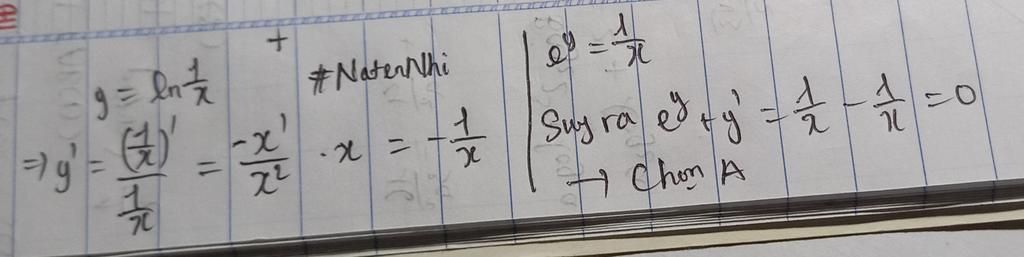 y = ln 1/x
#NatenNhi
=> y' = (1/x)' / (1/x) = -x'/x² . x = -1/x
e^y = 1/x
Suy ra e^y + y' = 1/x - 1/x = 0
→ Chọn A